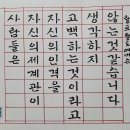 사람들은
자신의세계관이
자신의인격을
고백하는것이라고
생각하지
않는것같습니다